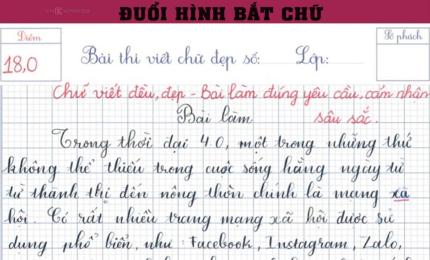 ĐUỔI HÌNH BẮT CHỮ
Điểm
Số phách
18,0
Bài thi viết chữ đẹp số:
Lớp:
Chữ viết đều, đẹp - Bài làm đúng yêu cầu, cảm nhận
sâu sắc.
Bài làm
Trong thời đại 4.0, một trong những thứ
không thể thiếu trong cuộc sống hằng ngày từ
từ thành thị đến nông thôn chính là mạng xã
hội. Có rất nhiều trang mạng xã hội được sử
dụng phổ biến, như Facebook, Instagram, Zalo,